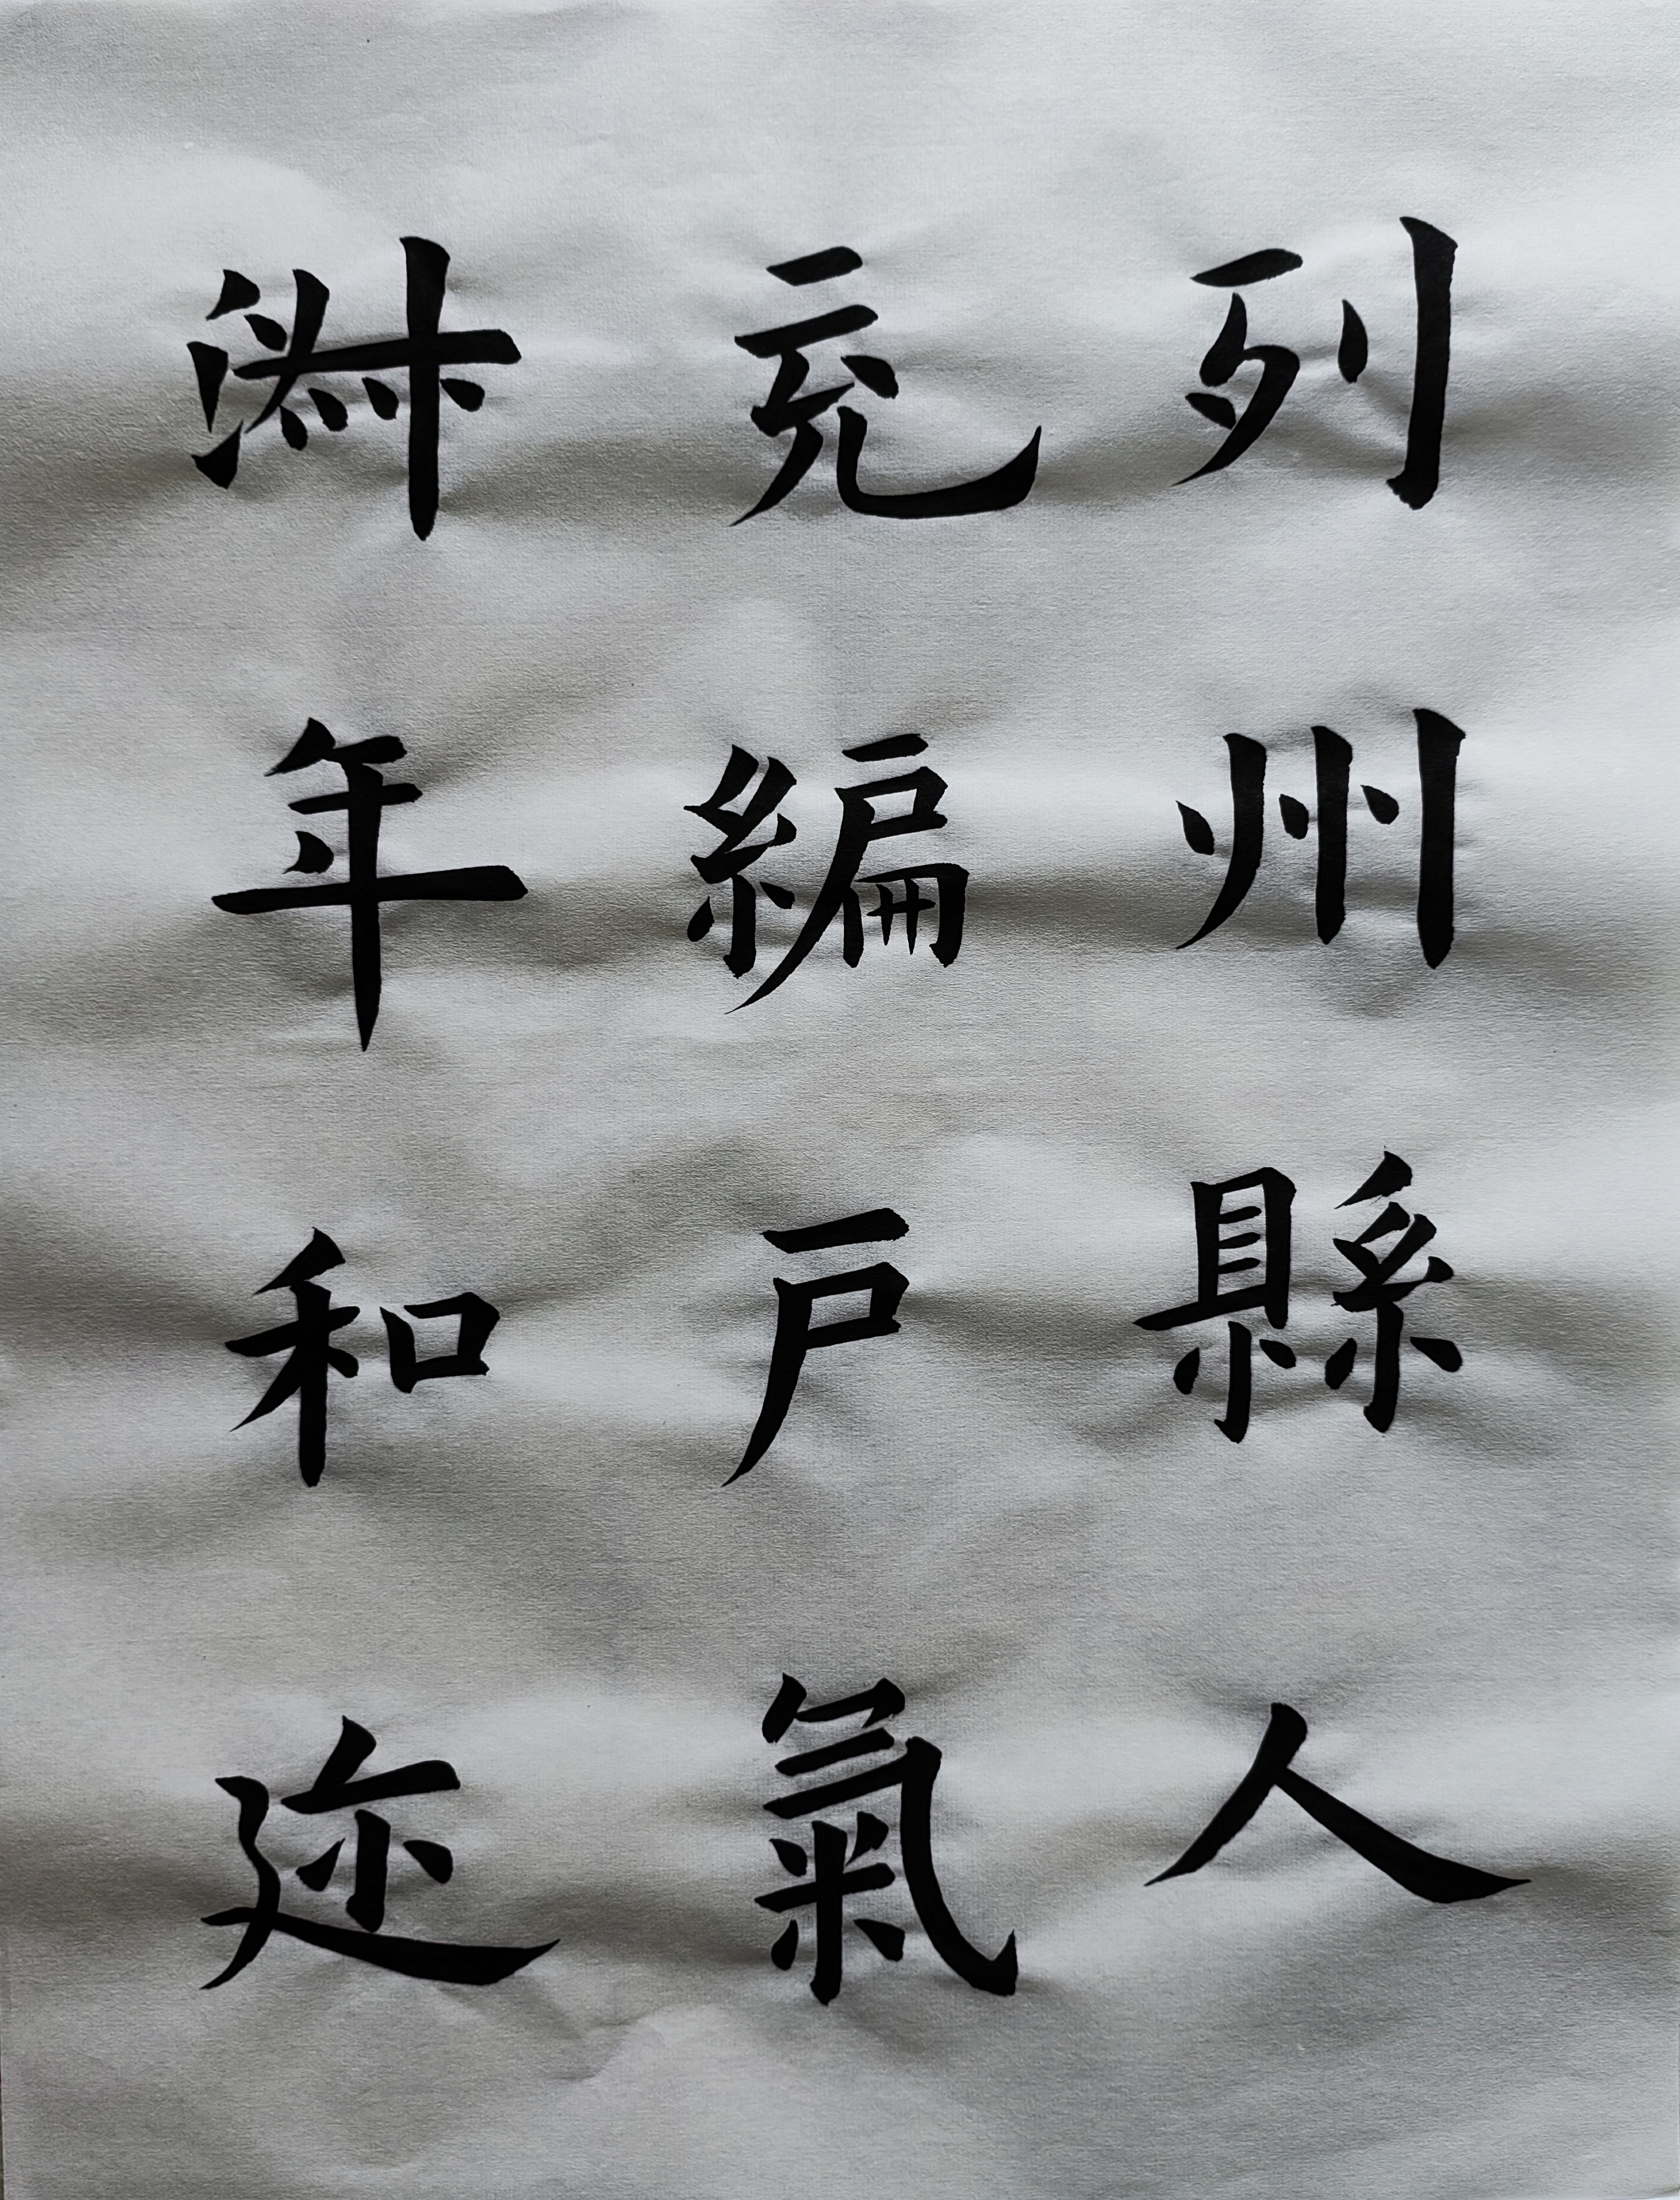 列州縣人
充編戸氣
淑年和迩